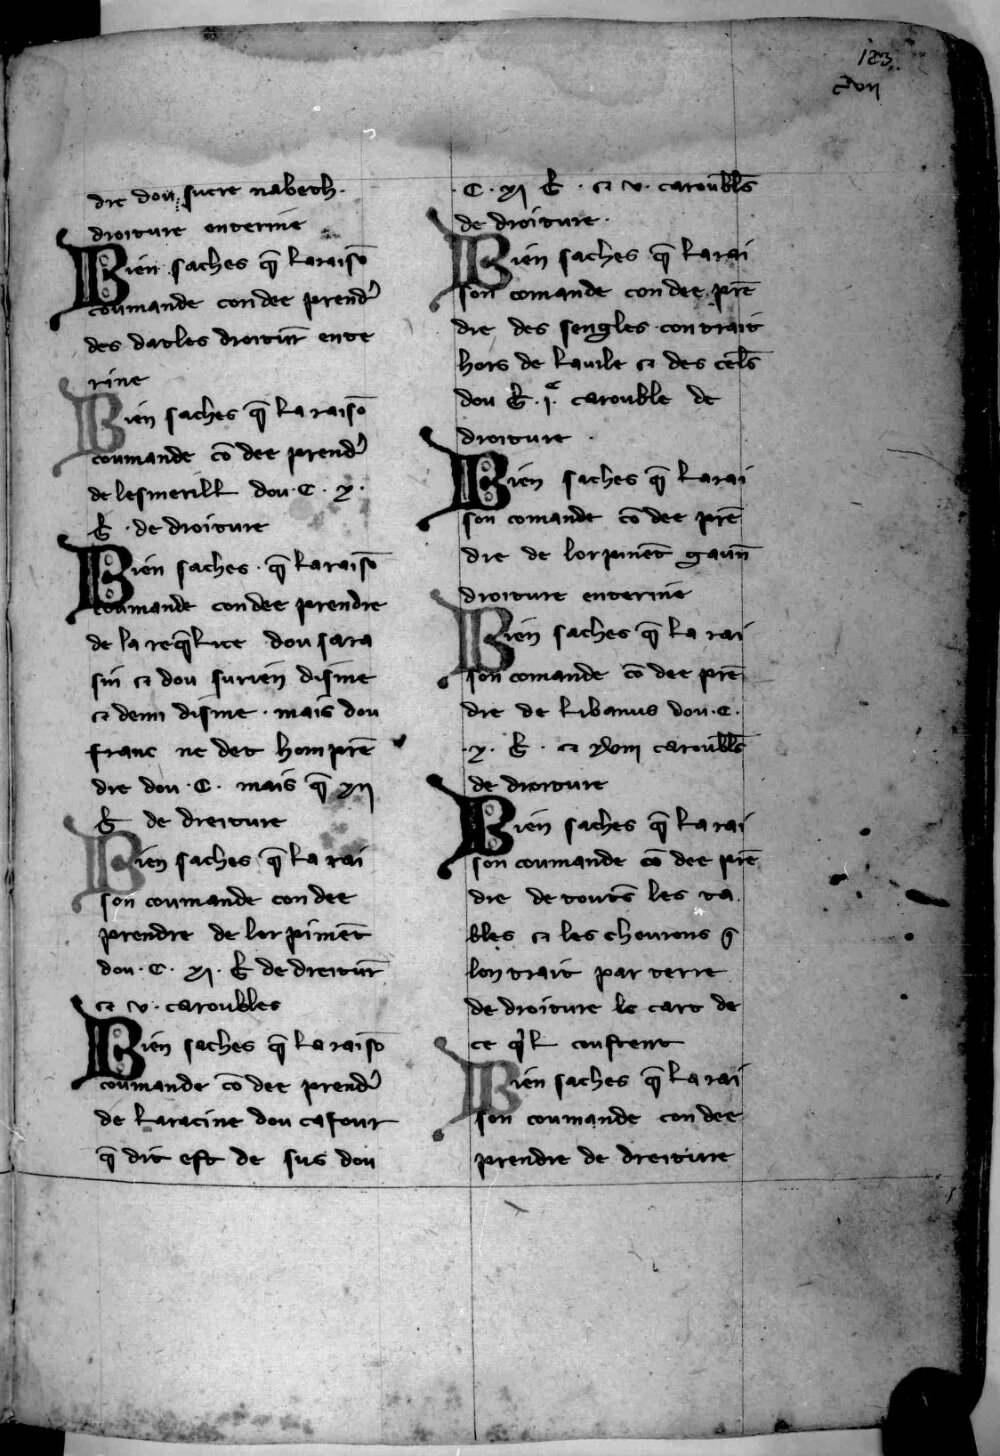 123
cvii
dre dou sucre nabeth·
droiture enterine
Bien saches q̃ la raisõ
coumande con dee prendr̉
des datles droitur̃ ente
rine
Bien saches q̃ la raisõ
coumande cõ dee prendr̉
de lesmerill dou·C· x·
b̃ · de droiture
Bien saches · q̃ la raisõ
coumande con dee prendre
de la req̃lice dou sara
sin ⁊ dou surien disme
⁊ demi disme · mais dou
franc ne det hom prẽ
dre dou ·C· mais q̃ xii
b̃ de dreiture
Bien saches q̃ la rai
son coumande con dee
prendre de lorpimẽt
dou·C· xi· b̃ de dreitur̃
⁊ v· caroubles
Bien saches q̃ la raisõ
coumande cõ dee prendr̉
de la racine dou cafour
q̃ dit est de sus dou
·C· xi b̃ · ⁊ v· caroubl̃s
de droiture·
Bien saches q̃ la rai
son comande con dee prẽ
dre des sengles con trait
hors de la vile ⁊ des cel̃s
dou b̃ ·i· carouble de
droiture ·
Bien saches q̃ la rai
son comande cõ dee prẽ
dre de lorpimẽt gaun̄
droiture enterine
Bien saches q̃ la rai
son comande cõ dee prẽ
dre de libanus dou·C·
·x· b̃ · ⁊ xviii caroubl̃s
de droiture
Bien saches q̃ la rai
son coumande cõ dee prẽ
dre de toutes les ta
bles ⁊ les chevrons q̃
lon trait par terre
de droiture le cart de
ce q̉l coustent
Bien saches q̃ la rai
son coumande con dee
prendre de dreiture